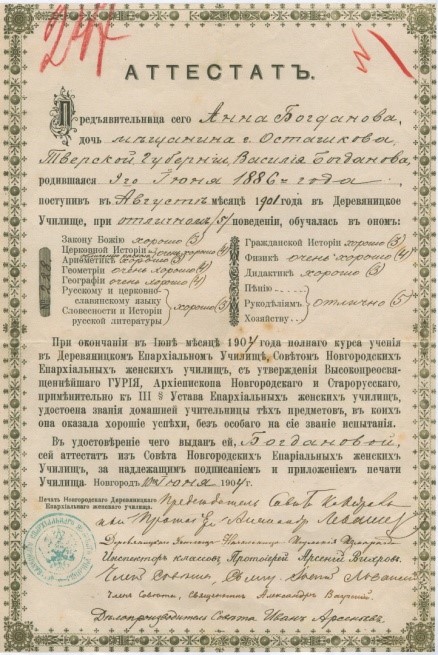 247
АТТЕСТАТЪ.
Предъявительница сего Анна Богданова,
дочь мѣщанина г. Осташкова,
Тверской Губерніи, Василія Богданова,
родившаяся 3го Іюня 1886 года
поступивъ въ Августѣ мѣсяцѣ 1901 года въ Деревяницкое
Училище, при отличномъ (5) поведеніи, обучалась въ ономъ:
Закону Божію хорошо (3)
Церковной Исторіи очень хорошо (4)
Ариѳметикѣ хорошо (3)
Геометріи очень хорошо (4)
Географіи очень хорошо (4)
Русскому и церковно-
славянскому языку
Словесности и Исторіи
русской литературы
хорошо (3)
Гражданской Исторіи хорошо (3)
Физикѣ очень хорошо (4)
Дидактикѣ хорошо (3)
Пѣнію
Рукодѣліямъ отлично (5)
Хозяйству
При окончаніи въ Іюнѣ мѣсяцѣ 1904 года полнаго курса ученія
въ Деревяницкомъ Епархіальномъ Училищѣ, Совѣтомъ Новгородскихъ
Епархіальныхъ женскихъ училищъ, съ утвержденія Высокопреосвя-
щеннѣйшаго ГУРІЯ, Архіепископа Новгородскаго и Старорусскаго,
примѣнительно къ III § Устава Епархіальныхъ женскихъ училищъ,
удостоена званія домашней учительницы тѣхъ предметовъ, въ коихъ
она оказала хорошіе успѣхи, безъ особаго на сіе званіе испытанія.
Въ удостовѣреніе чего выданъ ей, Богдановой,
сей аттестатъ изъ Совѣта Новгородскихъ Епархіальныхъ женскихъ
Училищъ, за надлежащимъ подписаніемъ и приложеніемъ печати
Училища. Новгородъ Іюня 1904 г.
Печать Новгородскаго Деревяницкаго
Епархіальнаго женскаго училища.
Предсѣдатель Совѣта
Протоіерей Александръ
Деревяницкаго Училища Начальница
Инспекторъ классовъ Протоіерей Арсеній Вихровъ.
Членъ Совѣта,
Члены Совѣта, Священникъ Александръ
Дѣлопроизводитель Совѣта Иванъ Арсеньевъ.